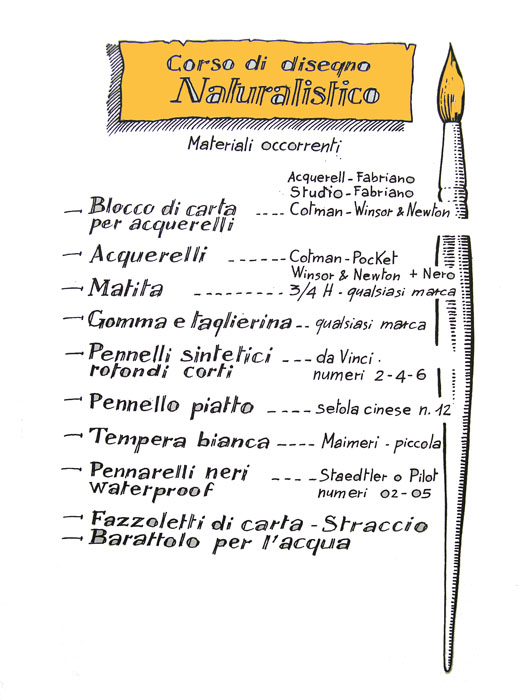 Corso di disegno
Naturalistico
Materiali occorrenti
Acquerell - Fabriano
Studio - Fabriano
— Blocco di carta ---- Cotman - Winsor & Newton
per acquerelli
— Acquerelli ------ Cotman - Pocket
Winsor & Newton + Nero
— Matita --------- 3/4 H - qualsiasi marca
— Gomma e taglierina -- qualsiasi marca
— Pennelli sintetici --- da Vinci.
rotondi corti numeri 2-4-6
— Pennello piatto ---- setola cinese n. 12
— Tempera bianca ---- Maimeri - piccola
— Pennarelli neri ---- Staedtler o Pilot
waterproof numeri 02-05
— Fazzoletti di carta - Straccio
— Barattolo per l'acqua